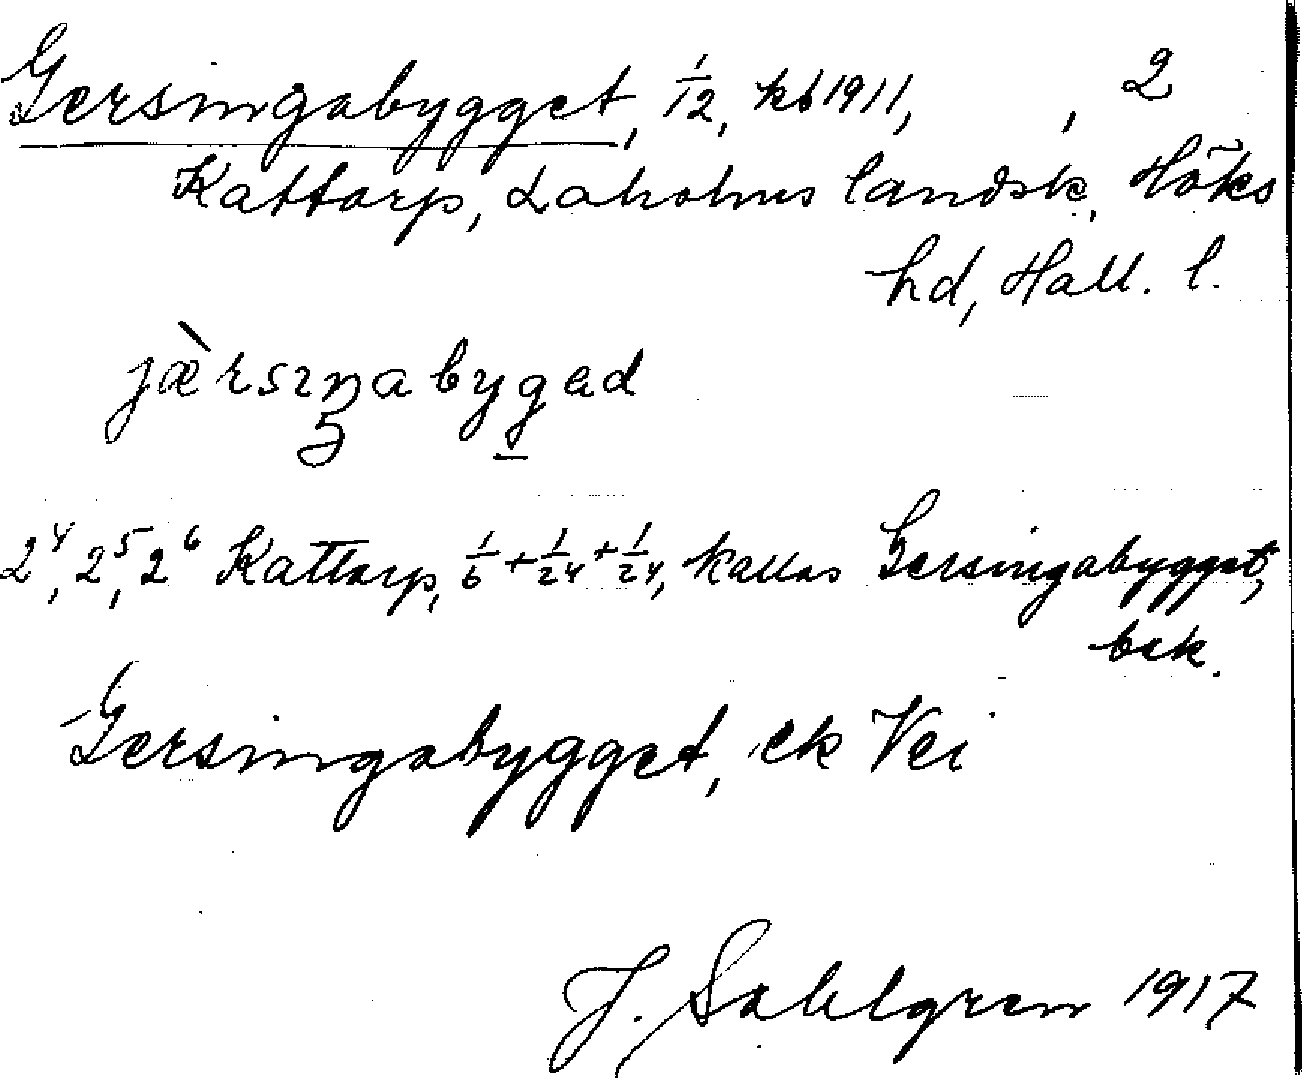 Gersingabygget, 1/2, kb 1911, , 2
Kattarp, Laholms landsk., Höks
hd, Hall. l.
jæ̀rsıŋabygəd
2⁴, 2⁵, 2⁶ Kattarp, 1/6 + 1/24 + 1/24, kallas Gersingabygget,
bek.
Gersingabygget, ek Vei
J. Sahlgren 1917